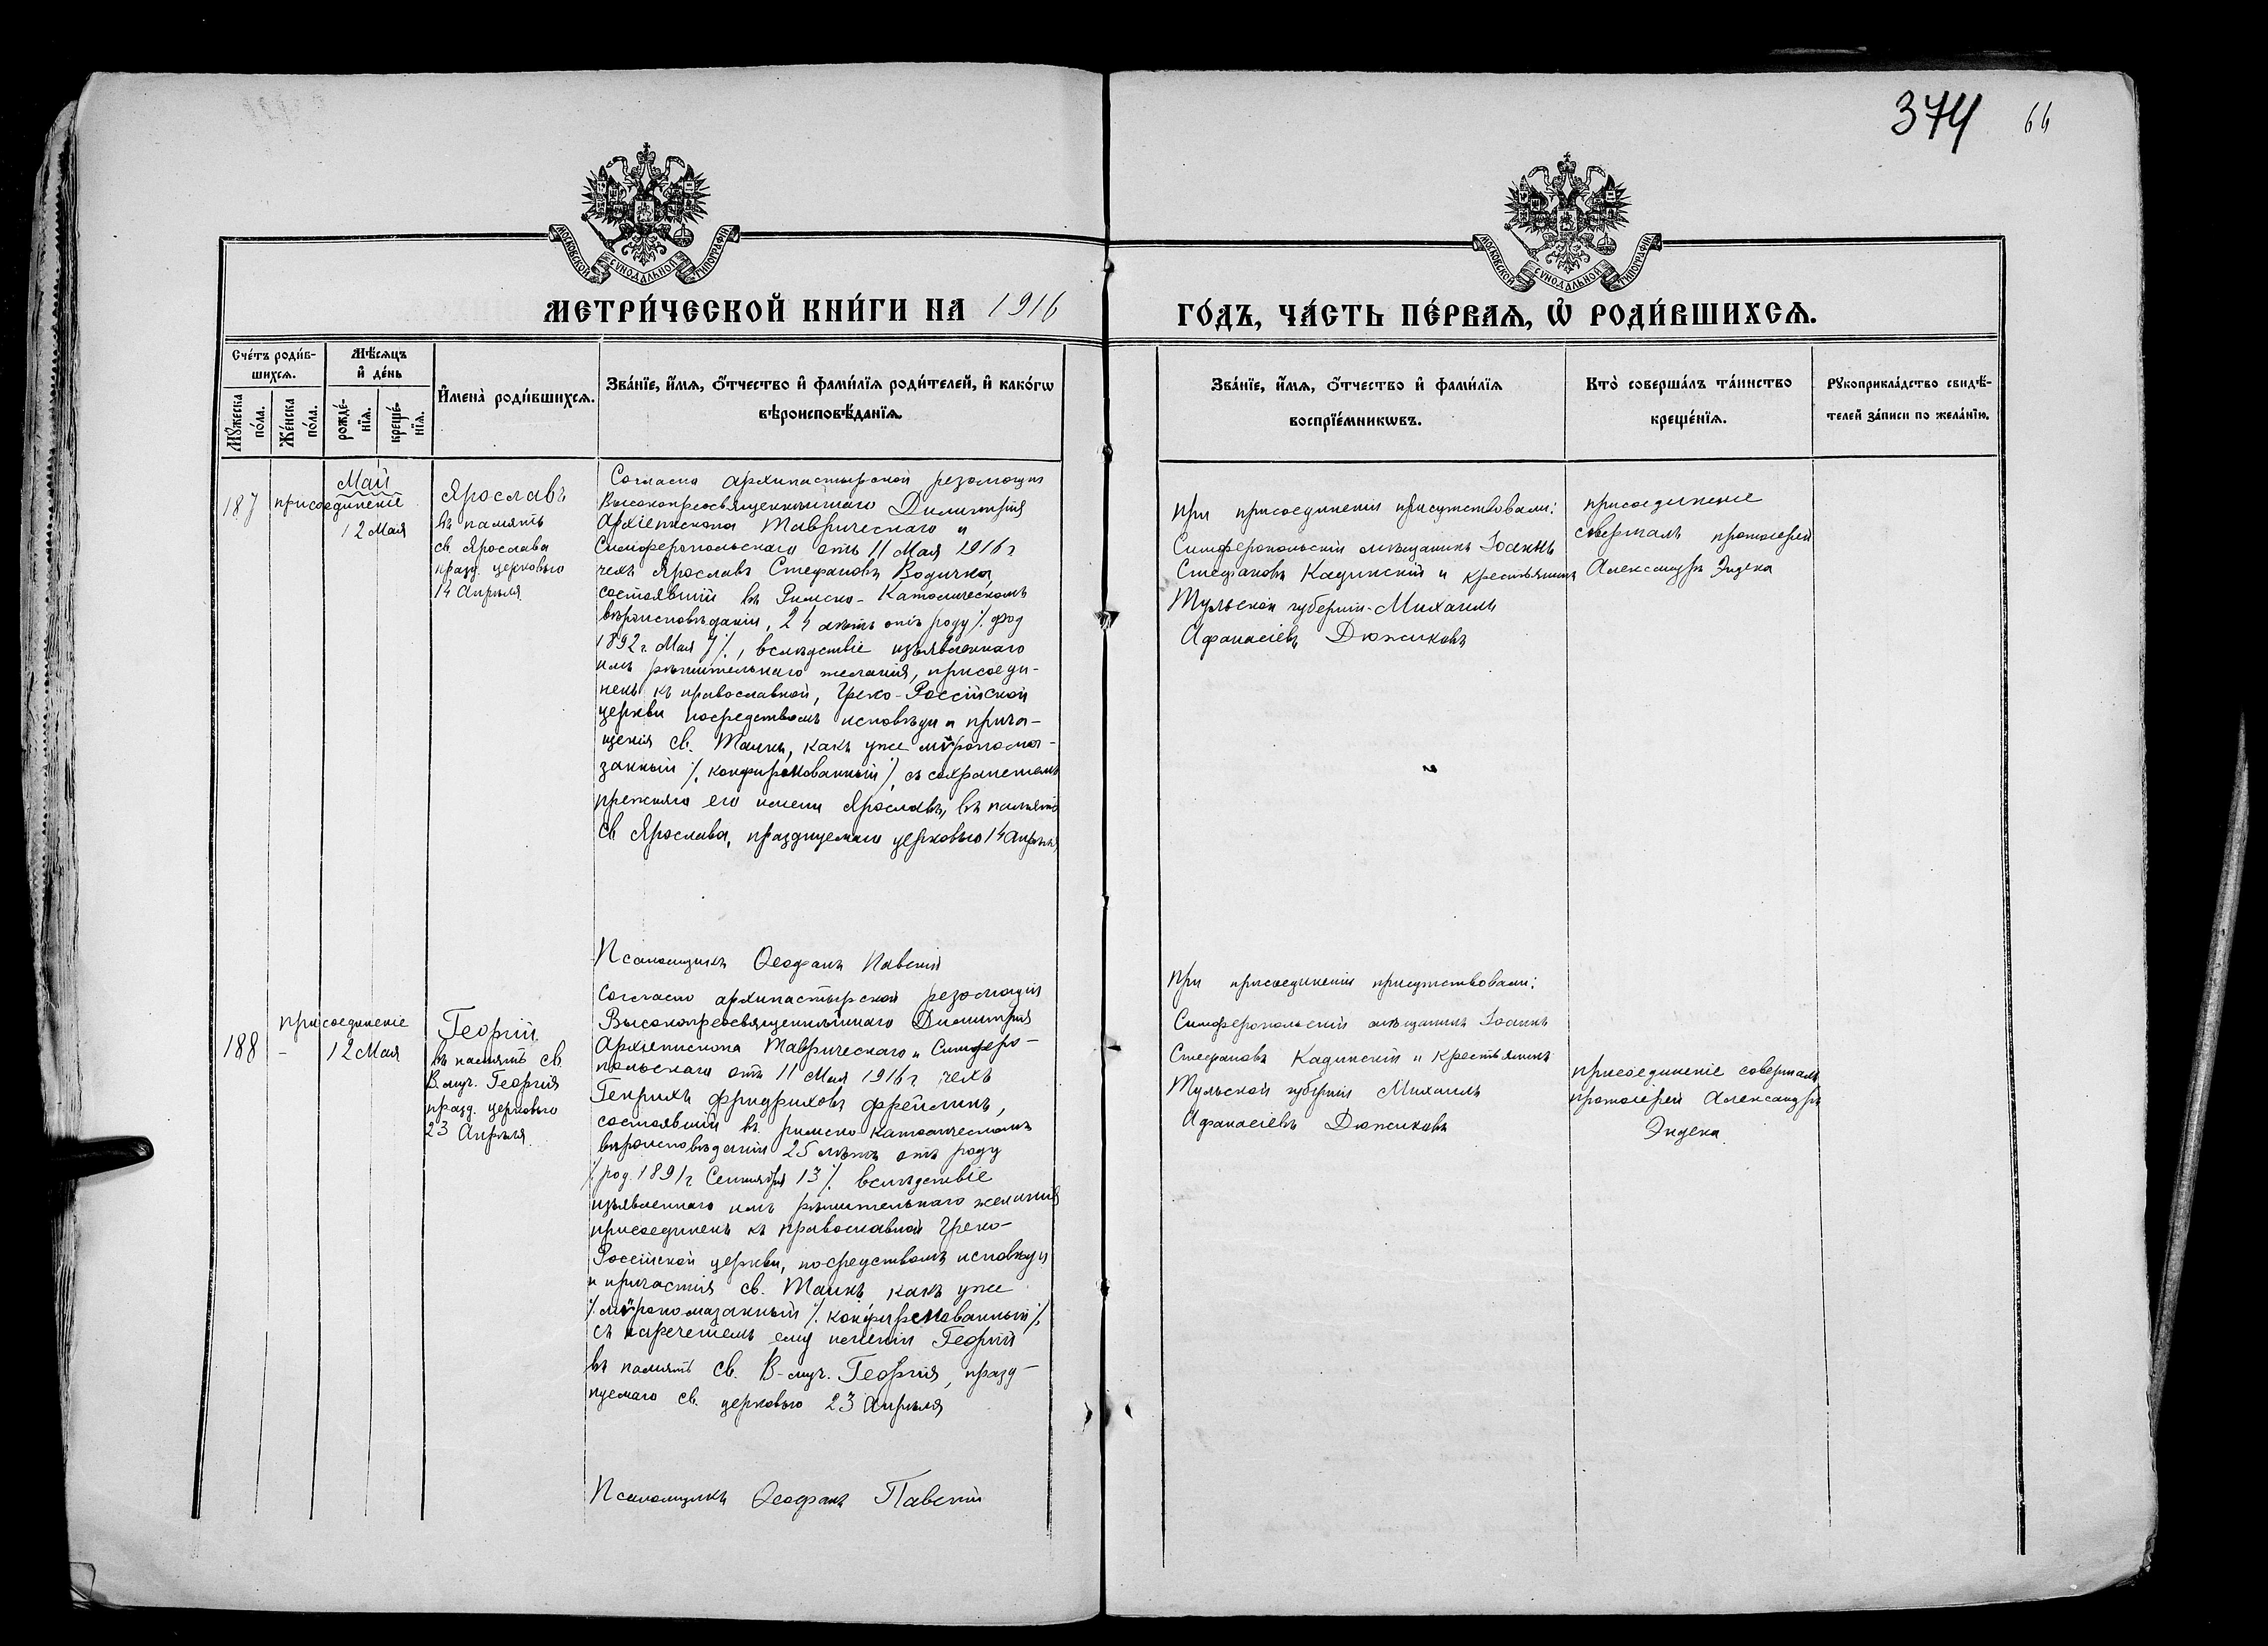 374 64
МОСКОВСКОЙ СУНОДАЛЬНОЙ ТИПОГРАФІИ
МОСКОВСКОЙ СУНОДАЛЬНОЙ ТИПОГРАФІИ
МЕТРИ́ЧЕСКОЙ КНИ́ГИ НА 1916
ГО́ДЪ, ЧА́СТЬ ПЕ́РВАѦ, Ѡ҆ РОДИ́ВШИХСѦ.
Сче́тъ роди́в-
шихсѧ.
Мꙋ́жеска по́ла.
Же́нска по́ла.
Мѣ́сѧцъ
и҆ де́нь
рожде́-
нїѧ.
креще́-
нїѧ.
И҆мена̀ роди́вшихсѧ.
Зва́нїе, и҆́мѧ, ѻ҆́тчество и҆ фами́лїѧ роди́телей, и҆ како́гѡ
вѣроисповѣ́данїѧ.
Зва́нїе, и҆́мѧ, ѻ҆́тчество и҆ фами́лїѧ
воспрїе́мникѡвъ.
Кто̀ соверша́лъ та́инство
креще́нїѧ.
Рꙋкоприкла́дство свидѣ́-
телей за́писи по жела́нїю.
Май
187 присоединеніе
12 Мая
Ярославъ
въ память
св. Ярослава
празд. церковью
14 Апрѣля
Согласно архипастырской резолюціи
Высокопреосвященнѣйшаго Димитрія
Архіепископа Таврическаго и
Симферопольскаго отъ 11 Мая 1916 г
чехъ Ярославъ Стефановъ Водичка,
состоявшій въ Римско-Католическомъ
вѣроисповѣданіи, 24 лѣтъ отъ роду /. род
1892 г. Мая 7 /., вслѣдствіе изъявленнаго
имъ рѣшительнаго желанія, присоеди-
ненъ къ православной, Греко-Россійской
церкви посредствомъ исповѣди и прича-
щенія св. Таинъ, какъ уже мѵропома-
занный /. конфирмованный /. съ сохраненіемъ
прежняго его имени Ярославъ, въ память
св Ярослава, празднуемаго церковью 14 Апрѣля
Псаломщикъ Ѳеофанъ Павскій
при присоединеніи присутствовали:
Симферопольскій мѣщанинъ Іоаннъ
Стефановъ Кадинскій и крестьянинъ
Тульской губерніи-Михаилъ
Афанасіевъ Дюжиковъ
присоединеніе
совершалъ протоіерей
Александръ Эндека
188 присоединеніе
- 12 Мая
Георгій
въ память св.
В.муч. Георгія
празд. церковью
23 Апрѣля.
Согласно архипастырской резолюціи
Высокопреосвященнѣйшаго Димитрія
Архіепископа Таврическаго и Симферо-
польскаго отъ 11 Мая 1916 г. чехъ
Генрихъ Фридриховъ Фрейлихъ,
состоявшій въ римско католическомъ
вѣроисповѣданіи 25 лѣтъ отъ роду
/. род. 1891 г Сентября 13 /. вслѣдствіе
изъявленнаго имъ рѣшительнаго желанія
присоединенъ къ православной Греко-
Россійской церкви, посредствомъ исповѣди
и причастія св. Таинъ, какъ уже
/. мѵропомазанный /. конфирмованный /.
съ нареченіемъ ему имени Георгій
въ память св. В-муч. Георгія, празд-
нуемаго св. церковью 23 Апрѣля
Псаломщикъ Ѳеофанъ Павскій
При присоединеніи присутствовали:
Симферопольскій мѣщанинъ Іоаннъ
Стефановъ Кадинскій и крестьянинъ
Тульской губерніи Михаилъ
Афанасіевъ Дюжиковъ
присоединеніе совершалъ
протоіерей Александръ
Эндека